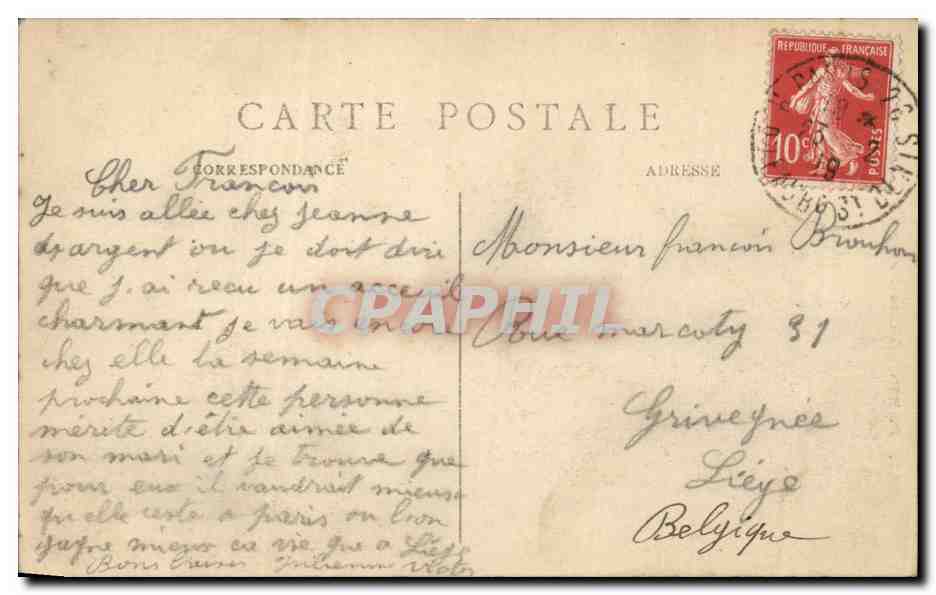 CARTE POSTALE
CORRESPONDANCE
ADRESSE
REPUBLIQUE FRANÇAISE
10c
POSTES
Cher Francois
Je suis allée chez Jeanne
d'argent ou je doit dire
que j'ai recu un acceuil
charmant je vais encore
chez elle la semaine
prochaine cette personne
mérite d'être aimée de
son mari et je trouve que
pour eux il vaudrait mieux
qu'elle reste a paris ou l'on
gagne mieux ca vie que a Liége
Bons baises
Monsieur francois
Rue marcoty 31
Grivegnée
Liége
Belgique
CPAPHIL